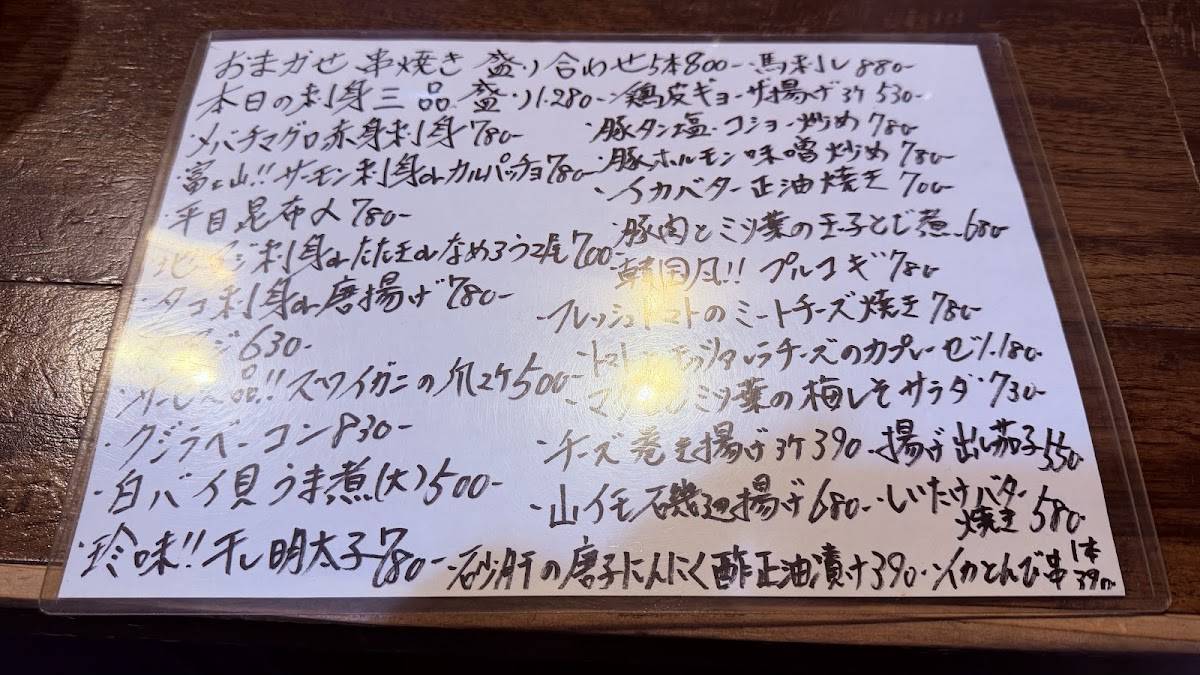 おまかせ串焼き盛り合わせ5本800-
本日の刺身三品盛り1.280-
・メバチマグロ赤身刺身780-
・富士山!!サーモン刺身orカルパッチョ780-
・平目昆布〆780-
地アジ刺身orたたきorなめろう2尾700-
・タコ刺身or唐揚げ780-
630-
品!!ズワイガニの爪2ケ500-
・クジラベーコン830-
・白バイ貝うま煮(大)500-
・珍味!!干し明太子780-
・馬刺し880-
・鶏皮ギョーザ揚げ3ケ530-
・豚タン塩・コショー炒め780-
・豚ホルモン味噌炒め780-
・イカバター正油焼き700-
・豚肉とミツ葉の玉子とじ煮680-
・韓国风!!プルコギ780-
・フレッシュトマトのミートチーズ焼き780-
・トマトとモッツァレラチーズのカプレーゼ1.180-
ミツ葉の梅しそサラダ730-
・チーズ巻き揚げ3ケ390-
・揚げ出し茄子550-
・山イモ磯辺揚げ680-
・しいたけバター焼き580-
・砂肝の唐子にんにく酢正油漬け390-
・イカとんび串1本390-